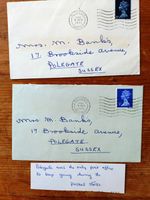 Mrs. M. Banks,
17, Brookside Avenue,
POLEGATE
SUSSEX
Mrs M. Banks,
17, Brookside Avenue,
POLEGATE,
SUSSEX.
Polegate was the only post office
to keep going during the
Postal Strike